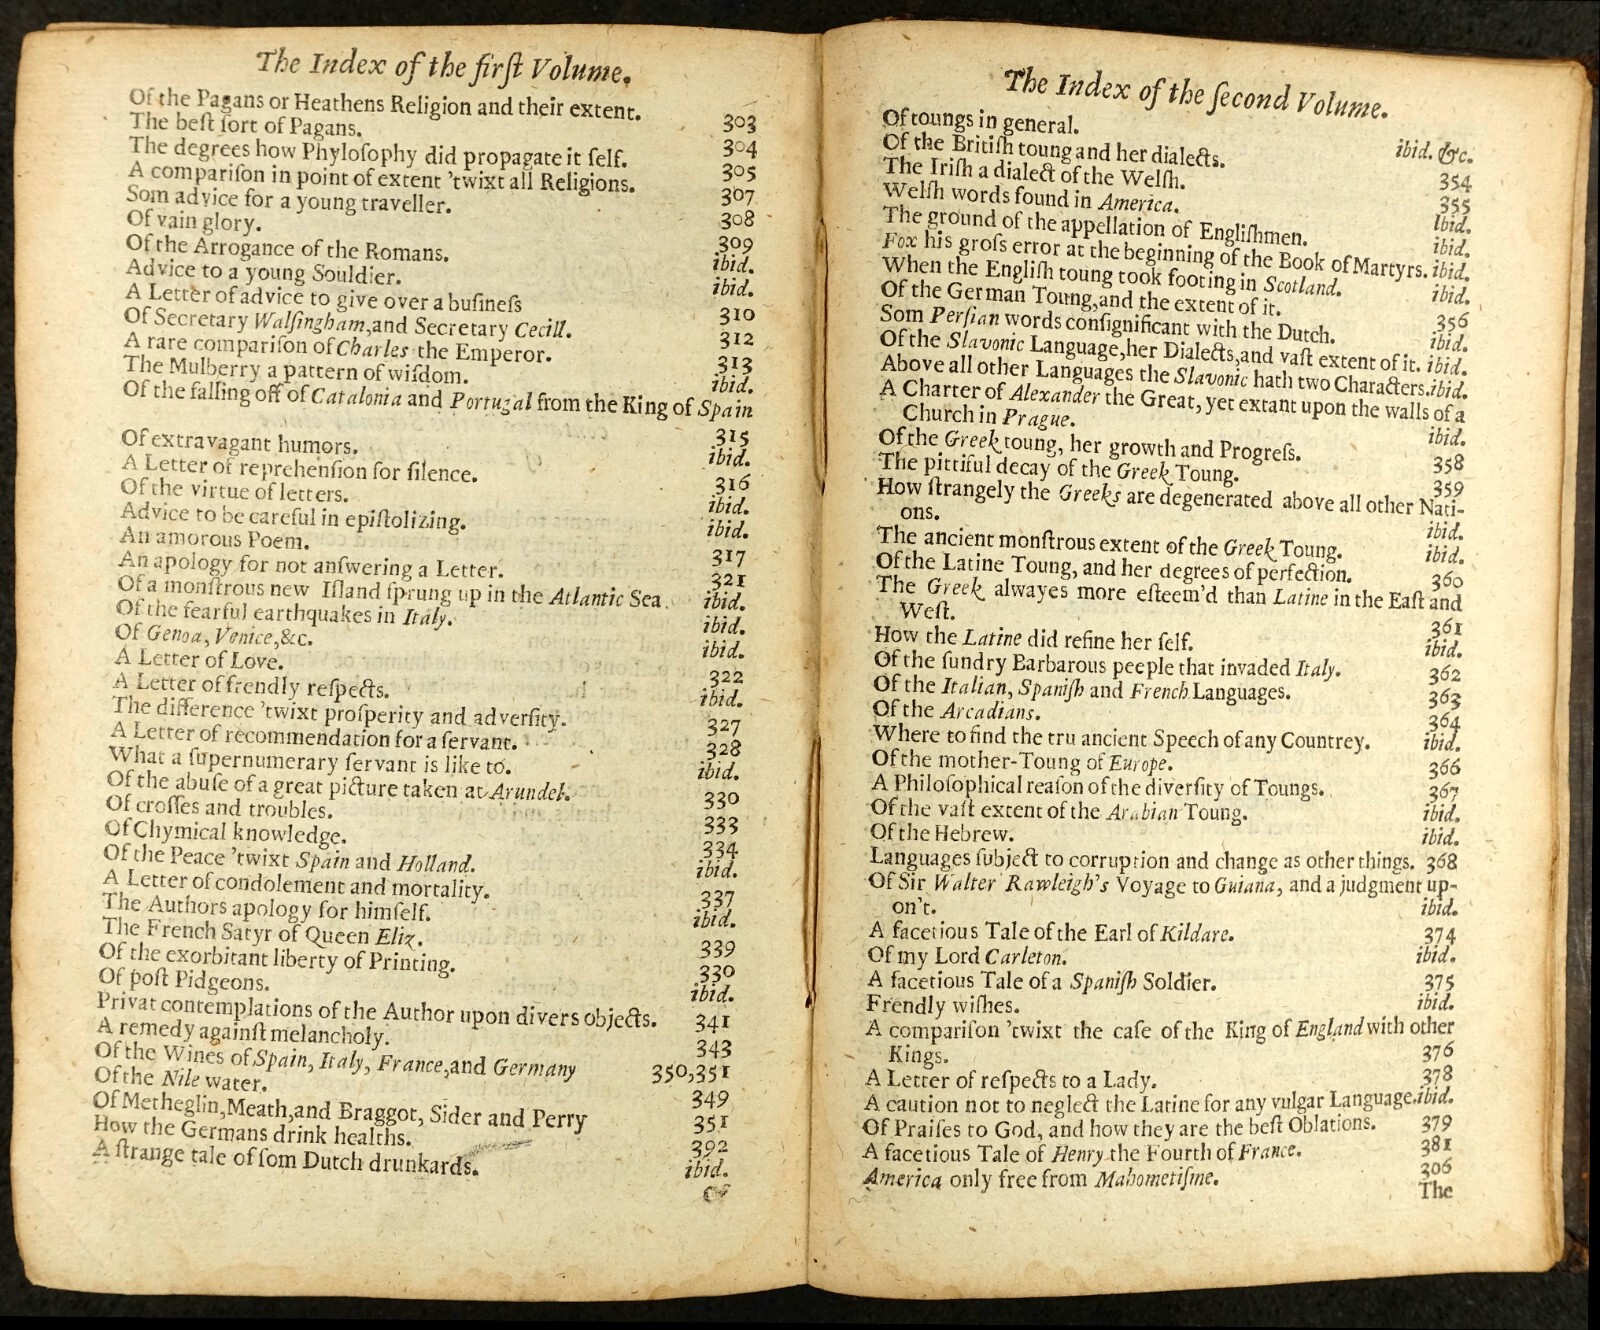 The Index of the firſt Volume.
Of the Pagans or Heathens Religion and their extent. 303
The beſt ſort of Pagans. 304
The degrees how Phyloſophy did propagate it ſelf. 305
A compariſon in point of extent 'twixt all Religions. 307
Som advice for a young traveller. 308
Of vain glory. 309
Of the Arrogance of the Romans. ibid.
Advice to a young Souldier. ibid.
A Letter of advice to give over a buſineſs 310
Of Secretary Walſingham,and Secretary Cecill. 312
A rare compariſon of Charles the Emperor. 313
The Mulberry a pattern of wiſdom. ibid.
Of the falling off of Catalonia and Portugal from the King of Spain
315
Of extravagant humors. ibid.
A Letter of reprehenſion for ſilence. 316
Of the virtue of letters. ibid.
Advice to be careful in epiſtolizing. ibid.
An amorous Poem. 317
An apology for not anſwering a Letter. 321
Of a monſtrous new Iſland ſprung up in the Atlantic Sea. ibid.
Of the fearful earthquakes in Italy. ibid.
Of Genoa, Venice,&c. ibid.
A Letter of Love. 322
A Letter of frendly reſpects. ibid.
The difference 'twixt proſperity and adverſity. 327
A Letter of recommendation for a ſervant. 328
What a ſupernumerary ſervant is like to. ibid.
Of the abuſe of a great picture taken at Arundel. 330
Of croſſes and troubles. 333
Of Chymical knowledge. 334
Of the Peace 'twixt Spain and Holland. ibid.
A Letter of condolement and mortality. 337
The Authors apology for himſelf. ibid.
The French Satyr of Queen Eliz. 339
Of the exorbitant liberty of Printing. 330
Of poſt Pidgeons. ibid.
Privat contemplations of the Author upon divers objects. 341
A remedy againſt melancholy. 343
Of the Wines of Spain, Italy, France,and Germany 350,351
Of the Nile water. 349
Of Metheglin,Meath,and Braggot, Sider and Perry 351
How the Germans drink healths. 392
A ſtrange tale of ſom Dutch drunkards. ibid.
Of
The Index of the ſecond Volume.
Of toungs in general. ibid. &c.
Of the Britiſh toung and her dialects. 354
The Iriſh a dialect of the Welſh. 355
Welſh words found in America. Ibid.
The ground of the appellation of Engliſhmen. ibid.
Fox his groſs error at the beginning of the Book of Martyrs. ibid.
When the Engliſh toung took footing in Scotland. ibid.
Of the German Toung,and the extent of it. 356
Som Perſian words conſignificant with the Dutch. ibid.
Of the Slavonic Language,her Dialects,and vaſt extent of it. ibid.
Above all other Languages the Slavonic hath two Characters.ibid.
A Charter of Alexander the Great, yet extant upon the walls of a
Church in Prague. ibid.
Of the Greek toung, her growth and Progreſs. 358
The pittiful decay of the Greek Toung. 359
How ſtrangely the Greeks are degenerated above all other Nati-
ons. ibid.
The ancient monſtrous extent of the Greek Toung. ibid.
Of the Latine Toung, and her degrees of perfection. 360
The Greek alwayes more eſteem'd than Latine in the Eaſt and
Weſt. 361
How the Latine did refine her ſelf. ibid.
Of the ſundry Barbarous peeple that invaded Italy. 362
Of the Italian, Spaniſh and French Languages. 363
Of the Arcadians. 364
Where to find the tru ancient Speech of any Countrey. ibid.
Of the mother-Toung of Europe. 366
A Philoſophical reaſon of the diverſity of Toungs. 367
Of the vaſt extent of the Arabian Toung. ibid.
Of the Hebrew. ibid.
Languages ſubject to corruption and change as other things. 368
Of Sir Walter Rawleigh's Voyage to Guiana, and a judgment up-
on't. ibid.
A facetious Tale of the Earl of Kildare. 374
Of my Lord Carleton. ibid.
A facetious Tale of a Spaniſh Soldier. 375
Frendly wiſhes. ibid.
A compariſon 'twixt the caſe of the King of England with other
Kings. 376
A Letter of reſpects to a Lady. 378
A caution not to neglect the Latine for any vulgar Language.ibid.
Of Praiſes to God, and how they are the beſt Oblations. 379
A facetious Tale of Henry the Fourth of France. 381
America only free from Mahometiſme. 306
The